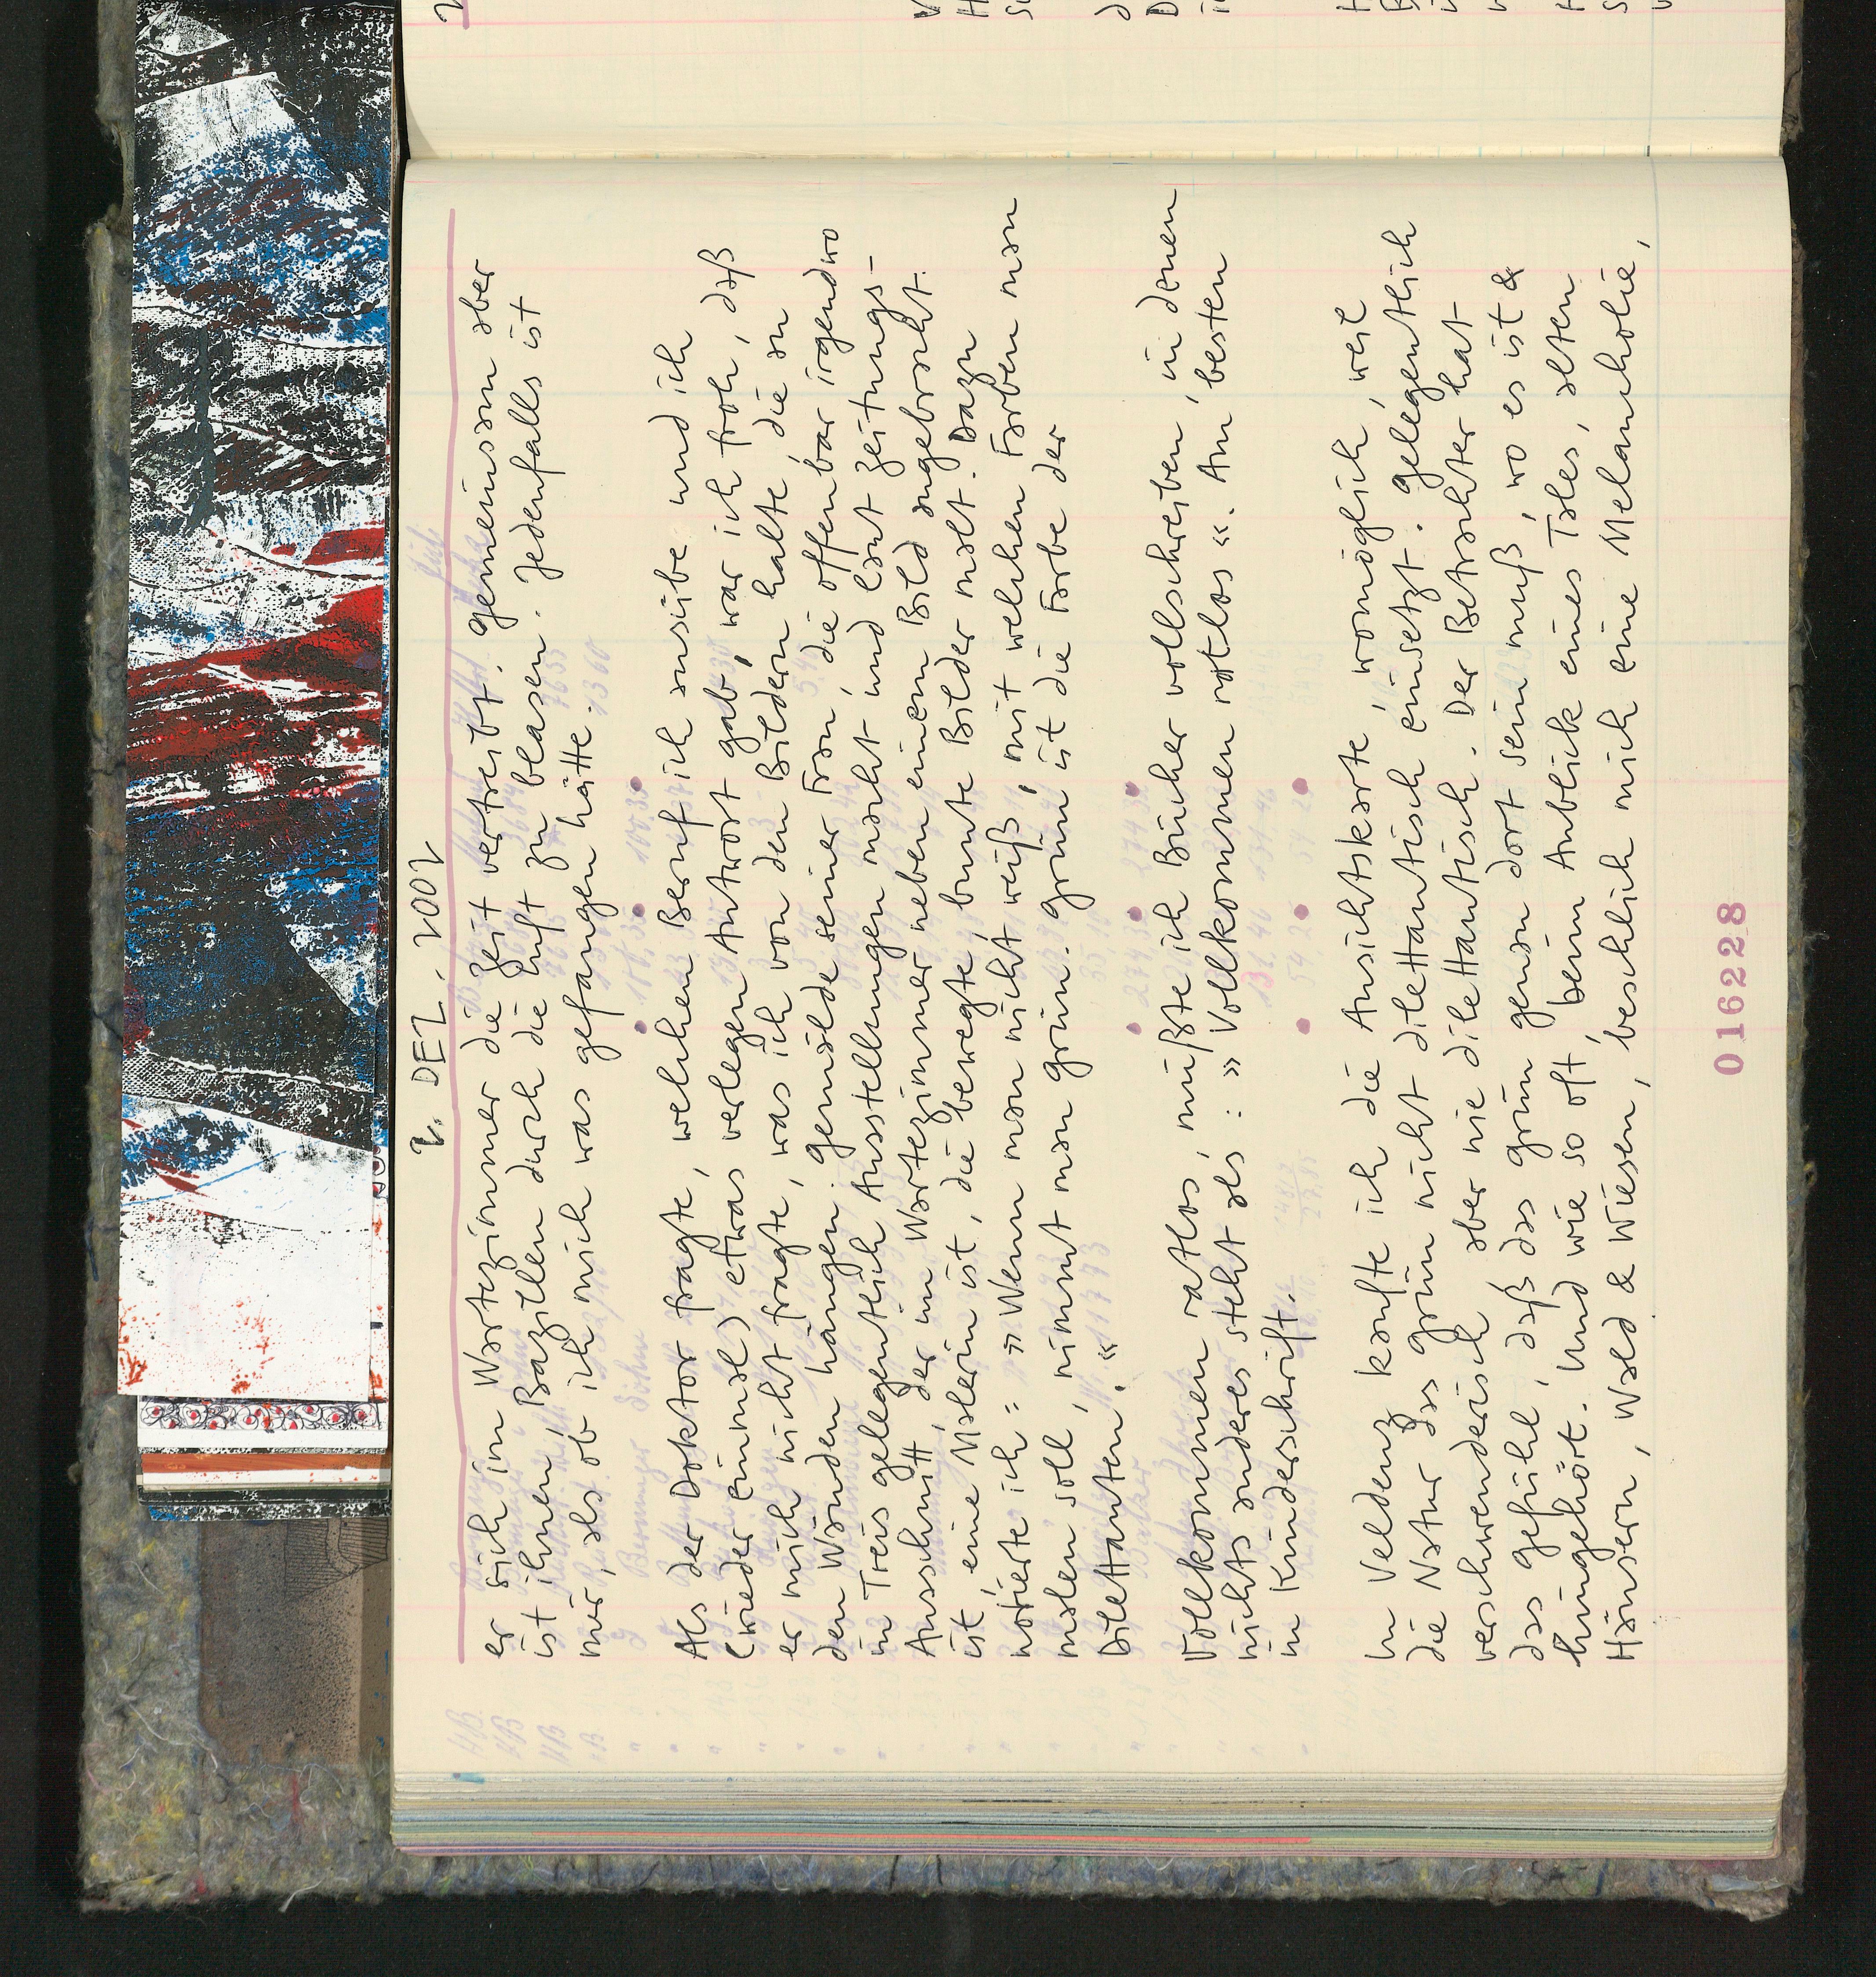 2. DEZ. 2002
er sich im Wartezimmer die Zeit vertreibt. Gemeinsam aber
ist ihnen, Bazillen durch die Luft zu blasen. Jedenfalls ist
mir, als ob ich mich was gefangen hätte.
Als der Doktor fragte, welchen Beruf ich ausübe und ich
(wieder einmal) etwas verlegen Antwort gab, war ich froh, daß
er mich nicht fragte, was ich von den Bildern halte, die an
den Wänden hängen. Gemälde seiner Frau, die offenbar irgendwo
in Treis gelegentlich Ausstellungen macht und laut Zeitungs-
Ausschnitt, der im Wartezimmer neben einem Bild angebracht
ist, eine Malerin ist, die bewegte, bunte Bilder malt. Dazu
notierte ich: »Wenn man nicht weiß, mit welchen Farben man
malen soll, nimmt man Grün. Grün ist die Farbe der
Dilettanten.«
Vollkommen ratlos, müßte ich Bücher vollschreiben, in denen
nichts anderes steht als: »Vollkommen ratlos«. Am besten
in Kinderschrift.
In Veldenz kaufte ich die Ansichtskarte, womöglich, weil
die Natur das Grün nicht dilettantisch einsetzt. Gelegentlich
verschwenderisch aber nie dilettantisch. Der Betrachter hat
das Gefühl, daß das Grün genau dort sein muß, wo es ist &
hingehört. Und wie so oft, beim Anblick eines Tales, alten
Häusern, Wald & Wiesen, beschlich mich eine Melancholie,
016228